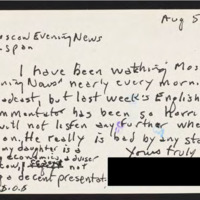 Aug 5
oscow Evening News
span
I have been watching Mos
ning News nearly every morni
oadcast, but last week's English
ommentator has been so Horri
will not listen any further whe
on. He really is bad by any sta
Yours truly
y daughter is a
economics adviser
not
g a decent presentat
B.O.B